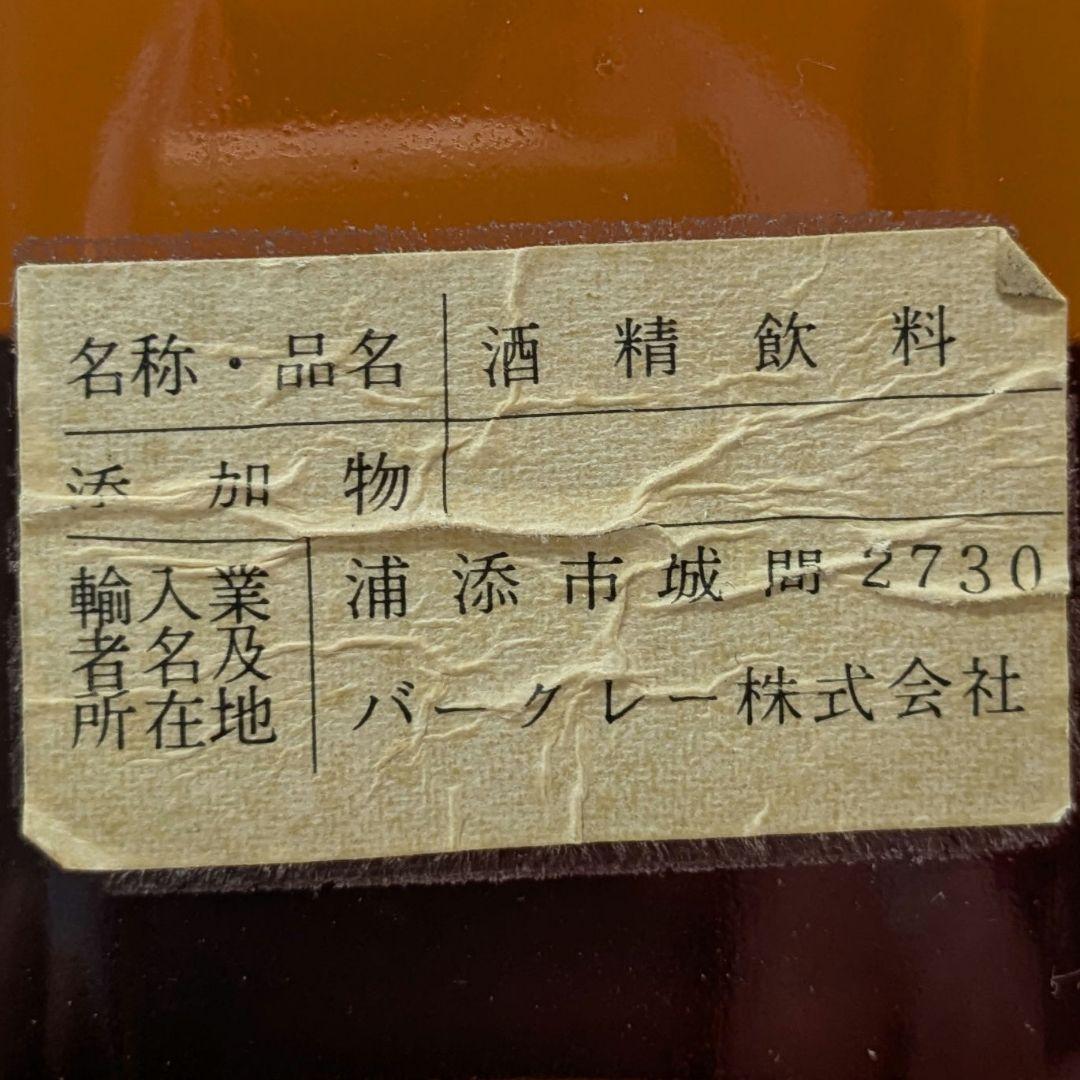 名称・品名 酒精飲料
添加物
輸入業者名及所在地
浦添市城間2730
バークレー株式会社